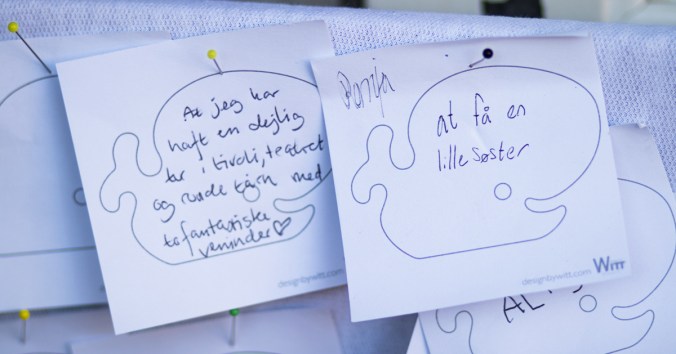 At jeg har
haft en dejlig
tur i tivoli, teatret
og runde tårn med
to fantastiske
veninder
designbywitt.com
Ronja
at få en
lille søster
designbywitt.com WITT